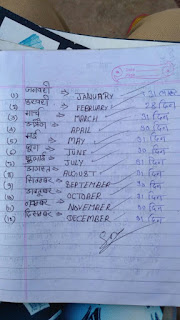 (1) जनवरी → JANUARY 31 दिन
(2) फरवरी → FEBRUARY 28 दिन
(3) मार्च → MARCH 31 दिन
(4) अप्रैल → APRIL 30 दिन
(5) मई → MAY 31 दिन
(6) जून → JUNE 30 दिन
(7) जुलाई → JULY 31 दिन
(8) अगस्त → AUGUST 31 दिन
(9) सितम्बर → SEPTEMBER 30 दिन
(10) अक्टूबर → OCTOBER 31 दिन
(11) नवम्बर → NOVEMBER 30 दिन
(12) दिसम्बर → DECEMBER 31 दिन